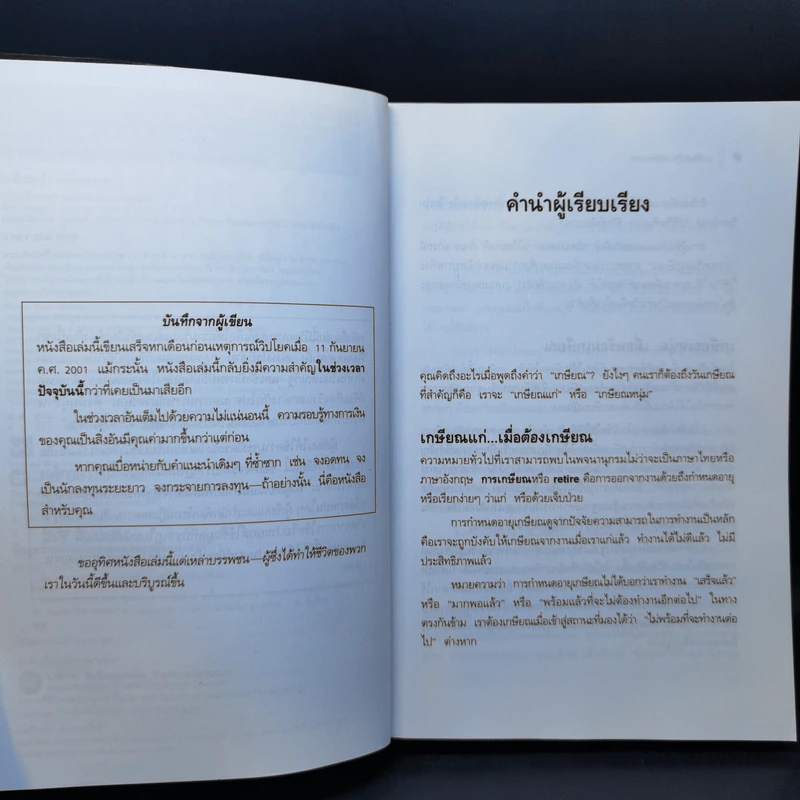 บันทึกจากผู้เขียน
หนังสือเล่มนี้เขียนเสร็จหกเดือนก่อนเหตุการณ์วิปโยคเมื่อ 11 กันยายน
ค.ศ. 2001 แม้กระนั้น หนังสือเล่มนี้กลับยิ่งมีความสำคัญในช่วงเวลา
ปัจจุบันนี้กว่าที่เคยเป็นมาเสียอีก
ในช่วงเวลาอันเต็มไปด้วยความไม่แน่นอนนี้ ความรอบรู้ทางการเงิน
ของคุณเป็นสิ่งอันมีคุณค่ามากขึ้นกว่าแต่ก่อน
หากคุณเบื่อหน่ายกับคำแนะนำเดิมๆ ที่ซ้ำซาก เช่น จงอดทน จง
เป็นนักลงทุนระยะยาว จงกระจายการลงทุน—ถ้าอย่างนั้น นี่คือหนังสือ
สำหรับคุณ
ขออุทิศหนังสือเล่มนี้แด่เหล่าบรรพชน—ผู้ซึ่งได้ทำให้ชีวิตของพวก
เราในวันนี้ดีขึ้นและบริบูรณ์ขึ้น
คำนำผู้เรียบเรียง
คุณคิดถึงอะไรเมื่อพูดถึงคำว่า "เกษียณ"? ยังไงๆ คนเราก็ต้องถึงวันเกษียณ
ที่สำคัญก็คือ เราจะ "เกษียณแก่" หรือ "เกษียณหนุ่ม"
เกษียณแก่...เมื่อต้องเกษียณ
ความหมายทั่วไปที่เราสามารถพบในพจนานุกรมไม่ว่าจะเป็นภาษาไทยหรือ
ภาษาอังกฤษ การเกษียณหรือ retire คือการออกจากงานด้วยถึงกำหนดอายุ
หรือเรียกง่ายๆ ว่าแก่ หรือด้วยเจ็บป่วย
การกำหนดอายุเกษียณดูจากปัจจัยความสามารถในการทำงานเป็นหลัก
คือเราจะถูกบังคับให้เกษียณจากงานเมื่อเราแก่แล้ว ทำงานได้ไม่ดีแล้ว ไม่มี
ประสิทธิภาพแล้ว
หมายความว่า การกำหนดอายุเกษียณไม่ได้บอกว่าเราทำงาน "เสร็จแล้ว"
หรือ "มากพอแล้ว" หรือ "พร้อมแล้วที่จะไม่ต้องทำงานอีกต่อไป" ในทาง
ตรงกันข้าม เราต้องเกษียณเมื่อเข้าสู่สถานะที่มองได้ว่า "ไม่พร้อมที่จะทำงานต่อ
ไป" ต่างหาก